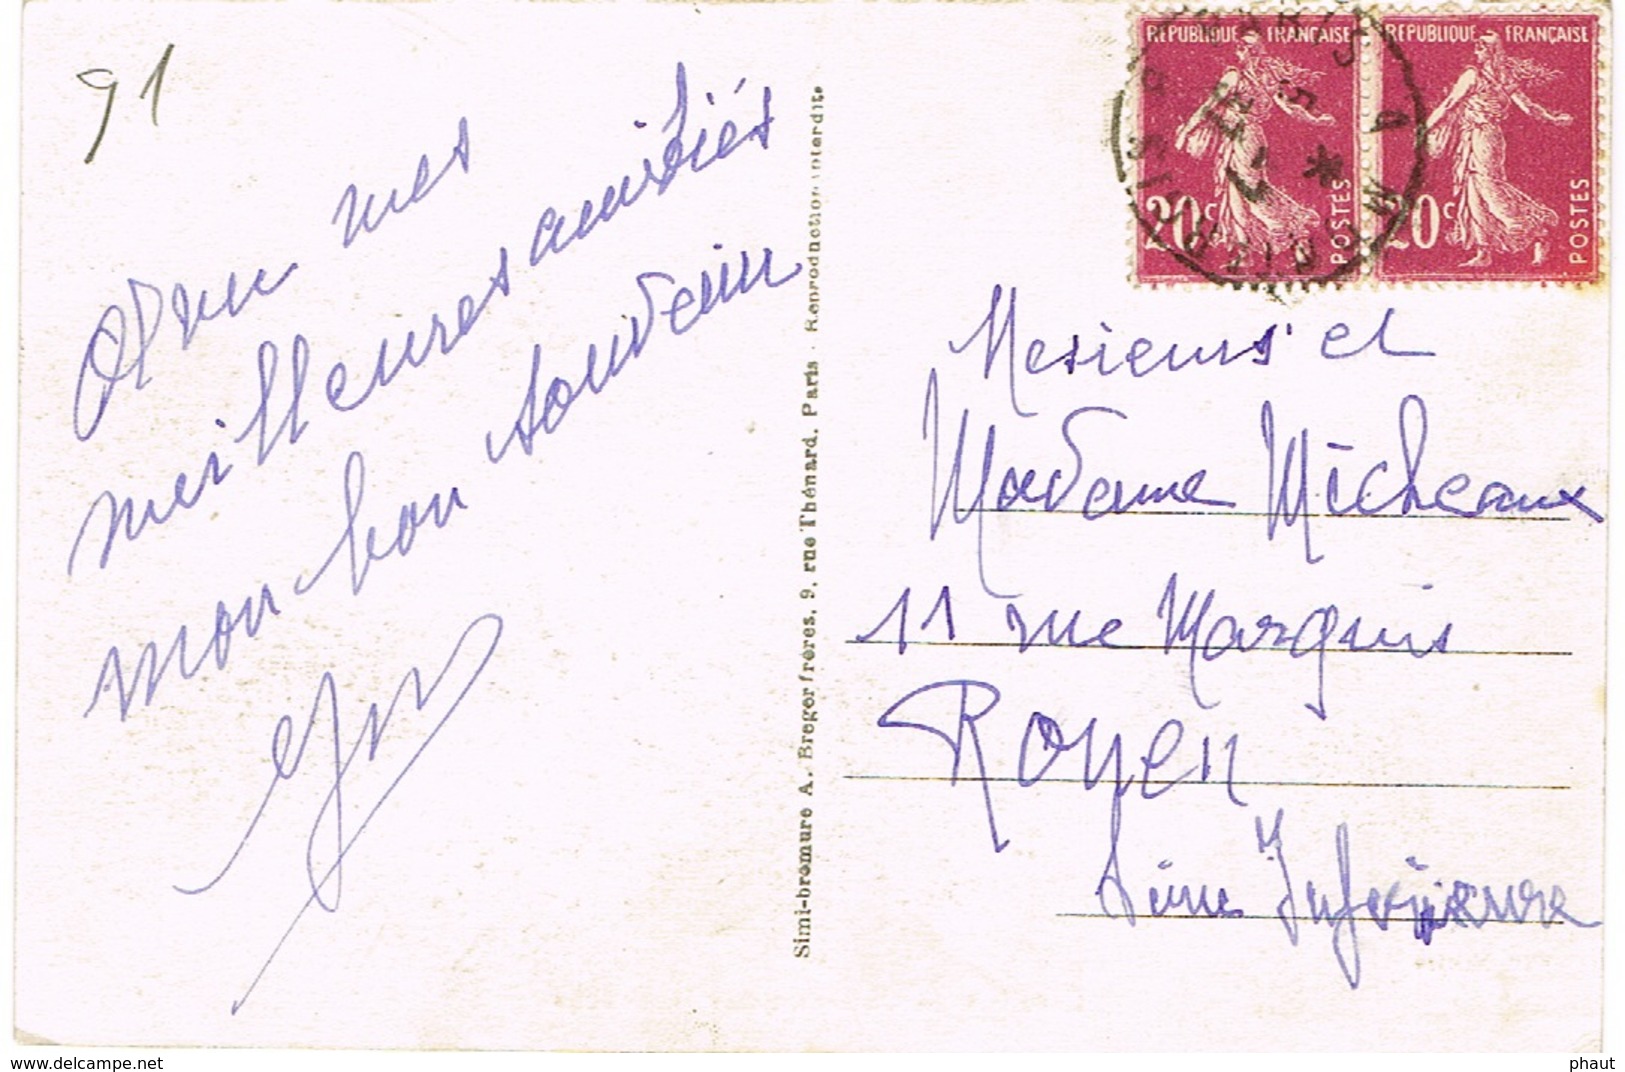 91
Avec mes
meilleures amitiés
mon bon souvenir
Simi-bromure A. Breger frères, 9, rue Thénard, Paris - Reproduction interdite
REPUBLIQUE FRANÇAISE
20c
POSTES
REPUBLIQUE FRANÇAISE
20c
POSTES
PARIS
Mesieurs et
Madame Micheaux
11 rue Marquis
Royen
Seine Inferieure
https://www.delcampe.net
phaut